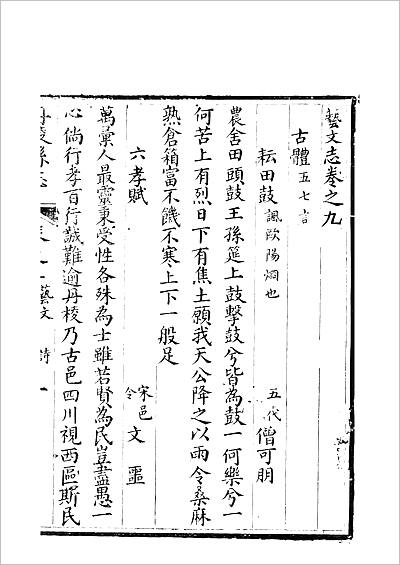 藝文志卷之九
古體五七言
耘田鼓諷歐陽烱也 五代僧可朋
農舍田頭鼓王孫筵上鼓擊鼓兮皆為鼓一何樂兮一
何苦上有烈日下有焦土願我天公降之以雨令桑麻
熟倉箱富不饑不寒上下一般足
六孝賦 宋邑令文
萬彙人最靈秉受性各殊為士雖若賢為民豈盡愚一
心倘行孝百行誠難逾丹稜乃古邑四川視西區斯民
藝文 詩 一